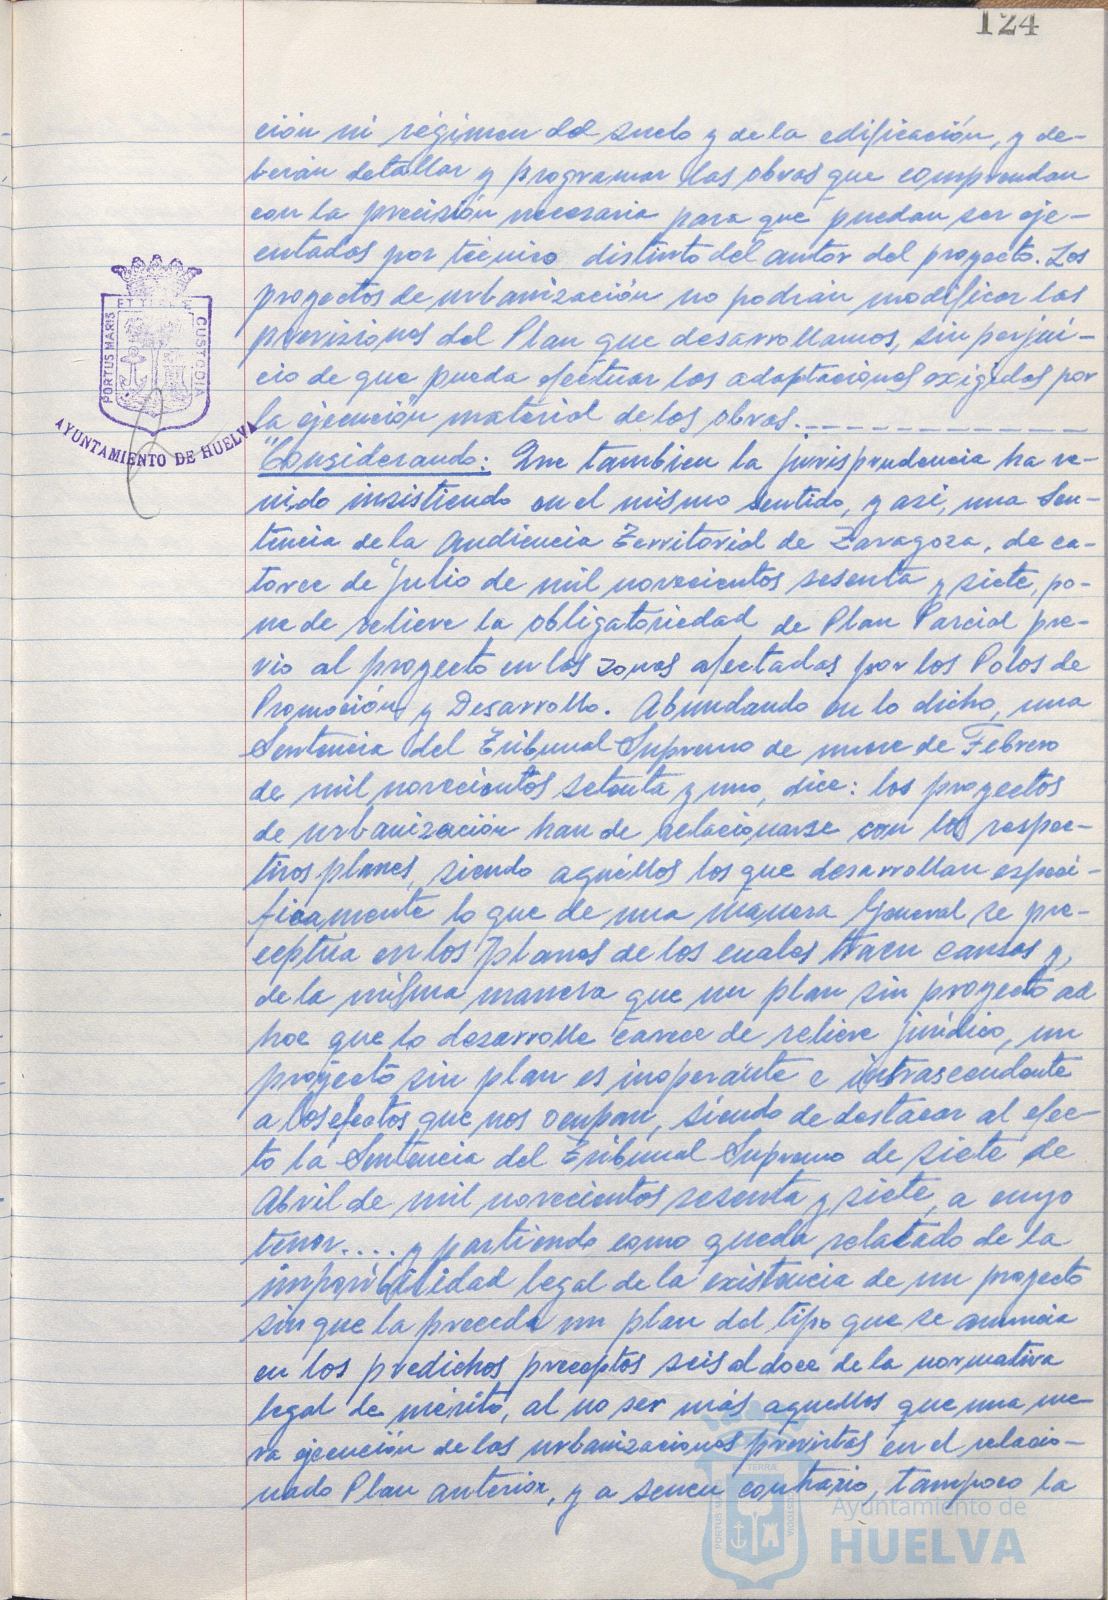 124
ción ni régimen del suelo y de la edificación, y de-
berán detallar y programar las obras que comprendan
con la precisión necesaria para que puedan ser eje-
cutados por técnico distinto del autor del proyecto. Los
proyectos de urbanización no podrán modificar las
previsiones del Plan que desarrollamos, sin perjui-
cio de que pueda efectuar las adaptaciones exigidas por
la ejecución material de las obras.
"Considerando: Que tambien la jurisprudencia ha ve-
nido insistiendo en el mismo sentido, y asi, una Sen-
tencia de la Audiencia Territorial de Zaragoza, de ca-
torce de Julio de mil novecientos sesenta y siete, po-
ne de relieve la obligatoriedad de Plan Parcial pre-
vio al proyecto en las zonas afectadas por los Polos de
Promoción y Desarrollo. Abundando en lo dicho, una
Sentencia del Tribunal Supremo de nueve de Febrero
de mil novecientos setenta y uno, dice: los proyectos
de urbanización han de relacionarse con los respec-
tivos planes, siendo aquéllos los que desarrollan especí-
ficamente lo que de una manera general se pre-
ceptúa en los planes de los cuales traen causas y,
de la misma manera que un plan sin proyecto ad
hoc que lo desarrolle carece de relieve jurídico, un
proyecto sin plan es inoperante e intrascendente
a los efectos que nos ocupan, siendo de destacar al efec-
to la Sentencia del Tribunal Supremo de siete de
Abril de mil novecientos sesenta y siete, a cuyo
tenor.... y partiendo como queda relatado de la
imposibilidad legal de la existencia de un proyecto
sin que la preceda un plan del tipo que se anuncia
en los predichos preceptos seis al doce de la normativa
legal de mérito, al no ser más aquellos que una me-
ra ejecución de las urbanizaciones previstas en el relacio-
nado Plan anterior, y a sensu contrario, tampoco la
PORTUS MARIS
ET TERRAE
CUSTODIA
AYUNTAMIENTO DE HUELVA
PORTUS MARIS
ET TERRAE
CUSTODIA
Ayuntamiento de
HUELVA